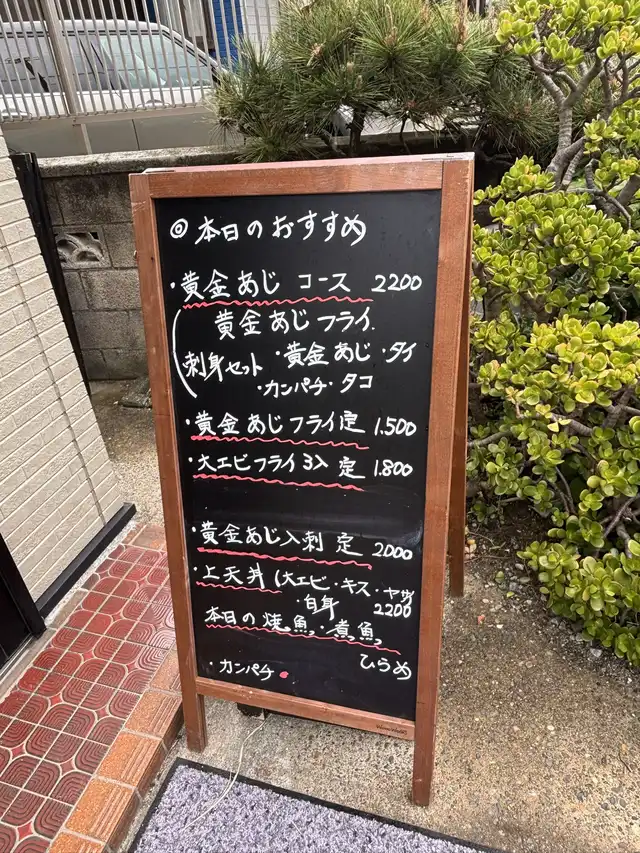 ◎本日のおすすめ
・黄金あじ コース 2200
黄金あじフライ.
刺身セット・黄金あじ・タイ
・カンパチ・タコ
・黄金あじフライ定 1.500
・大エビフライ3入 定 1.800
・黄金あじ入刺 定 2000
・上天丼(大エビ・キス・ヤサイ
・白身 2200
本日の焼魚・煮魚
・カンパチ ひらめ